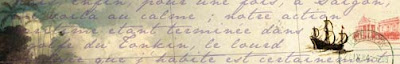 enfin, pour une fois, à Saigon,
voilà au calme notre action
me étant terminée dans
golfe du Tonkin, le lourd
que j'habite est certainement